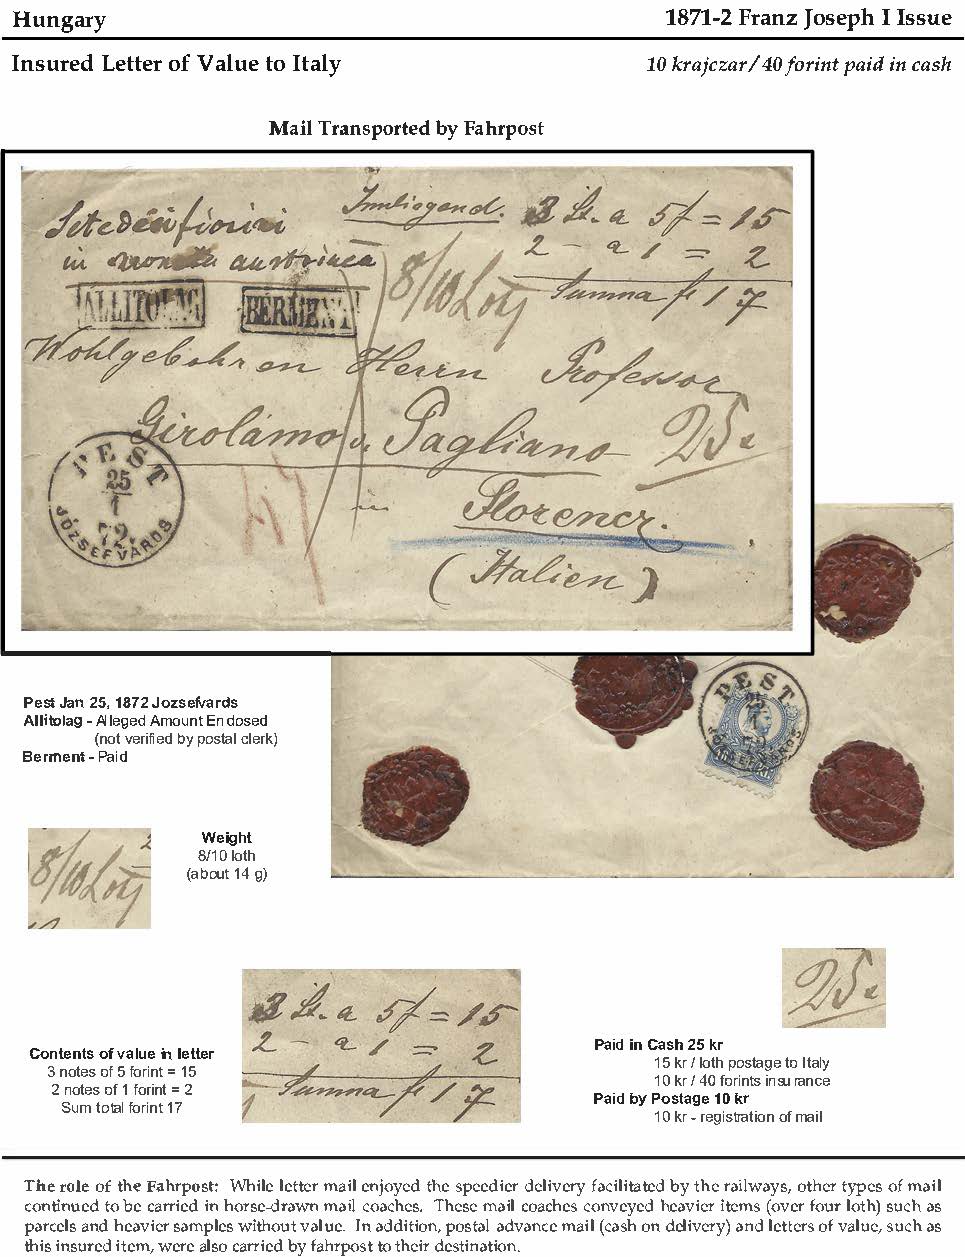 Hungary
1871-2 Franz Joseph I Issue
Insured Letter of Value to Italy
10 krajczar/40 forint paid in cash
Mail Transported by Fahrpost
Innliegend. 3 St. a 5f = 15
2 - a 1 = 2
Summa f 17
fiorini
in austriaca
8/10 Loty
ALLITOLAG
BÉRMENT
Wohlgebohren Herrn Professor
Girolámo v. Pagliano
25x
in Florencz.
(Italien)
PEST
25
1
72.
JÓZSEFVÁROS
PEST
25
1
72.
JÓZSEFVÁROS
Pest Jan 25, 1872 Jozsefvards
Allitolag - Alleged Amount Enclosed
(not verified by postal clerk)
Berment - Paid
8/10 Loty
Weight
8/10 loth
(about 14 g)
3 St. a 5f = 15
2 - a 1 = 2
Summa f 17
25x
Contents of value in letter
3 notes of 5 forint = 15
2 notes of 1 forint = 2
Sum total forint 17
Paid in Cash 25 kr
15 kr / loth postage to Italy
10 kr / 40 forints insurance
Paid by Postage 10 kr
10 kr - registration of mail
The role of the Fahrpost: While letter mail enjoyed the speedier delivery facilitated by the railways, other types of mail
continued to be carried in horse-drawn mail coaches. These mail coaches conveyed heavier items (over four loth) such as
parcels and heavier samples without value. In addition, postal advance mail (cash on delivery) and letters of value, such as
this insured item, were also carried by fahrpost to their destination.